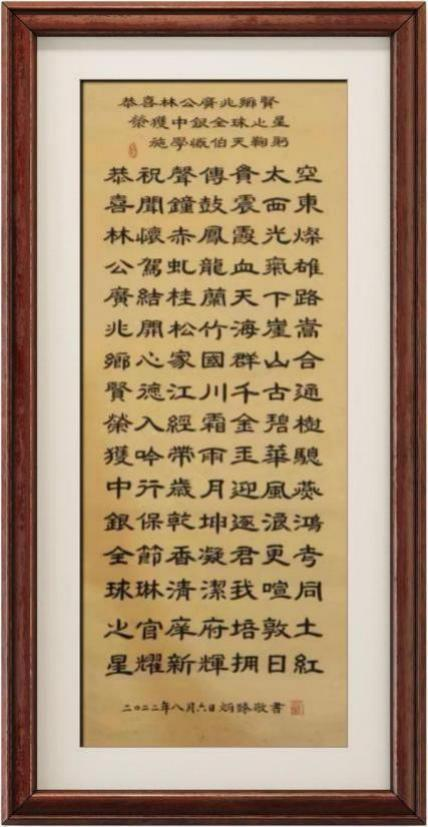 恭喜林公廣兆鄉賢
榮獲中銀全球之星
施學概伯天鞠躬
恭祝聲傳太空
喜聞鐘鼓震西東
林懷赤鳳霞光燦
公駕虬龍血氣雄
廣結桂蘭天下路
兆開松竹海崖嵩
鄉心家國群山合
賢德江川千古通
榮入經霜金碧樹
獲吟帶雨玉華驄
中行歲月迎風燕
銀保乾坤逐浪鴻
全節香凝君更
球琳清潔我喧同
之官庠府培敦土
星耀新輝拥日紅
二〇二二年八月六日敬書